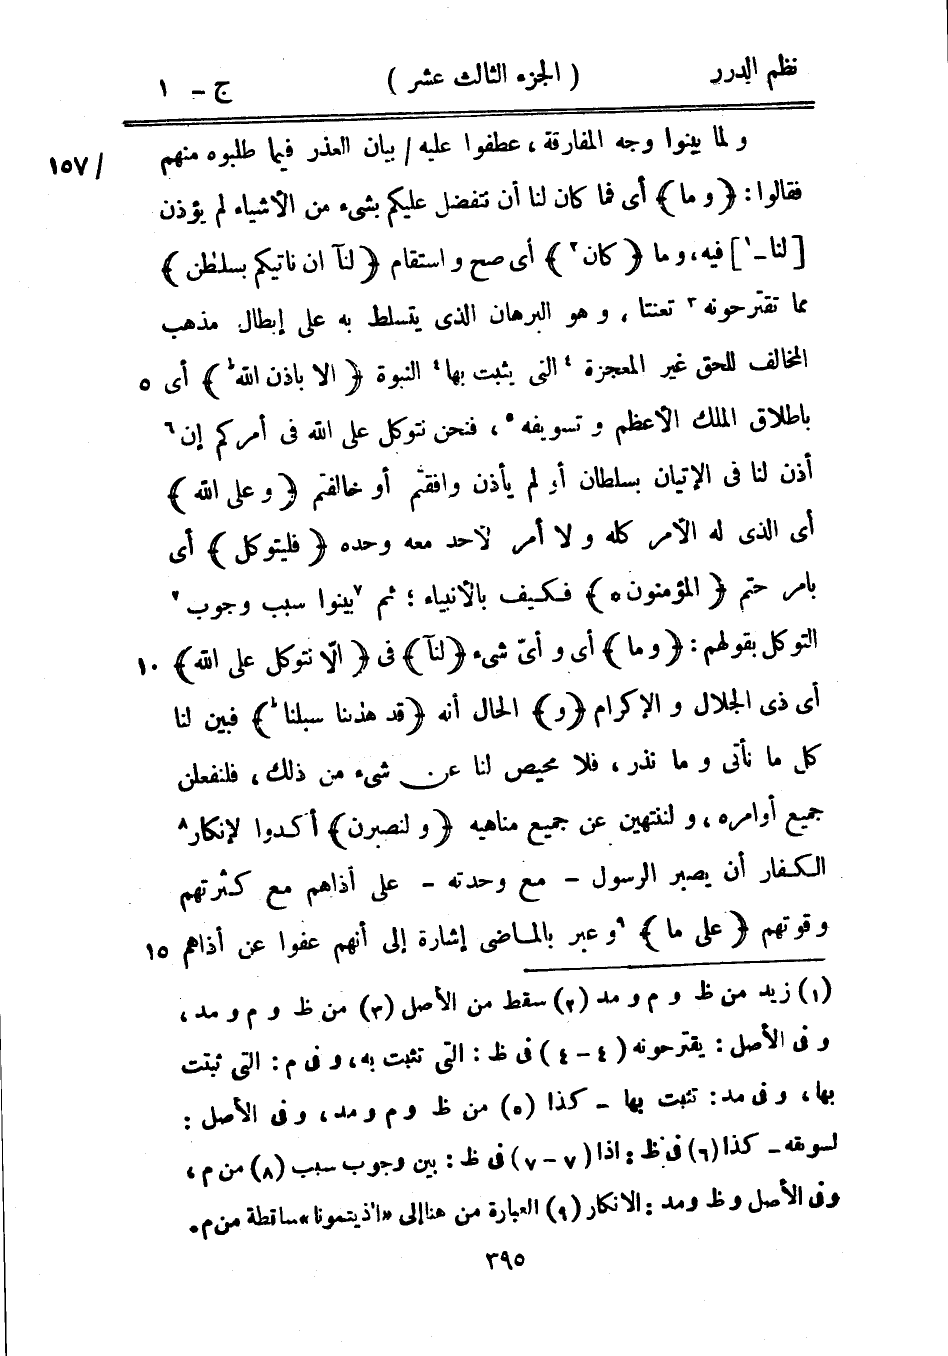 نظم الدرر ( الجزء الثالث عشر ) ج – ١
و لما بينوا وجه المفارقة ، عطفوا عليه / بيان العذر فيما طلبوه منهم / ١٥٧
فقالوا : ﴿ و ما ﴾ أى فما كان لنا أن نتفضل عليكم بشىء من الأشياء لم يؤذن
[ لنا - ١ ] فيه ، و ما ﴿ كان ٢ ﴾ أى صح و استقام ﴿ لنآ ان ناتيكم بسلطٰن ﴾
مما تقترحونه ٣ تعنتا ، و هو البرهان الذى يتسلط به على إبطال مذهب
المخالف للحق غير المعجزة ٤ التى يثبت بها ٤ النبوة ﴿ الا باذن الله ط ﴾ أى ٥
باطلاق الملك الأعظم و تسويفه ٥ ، فنحن نتوكل على الله فى أمركم إن ٦
أذن لنا فى الإتيان بسلطان أو لم يأذن وافقتم أو خالفتم ﴿ و على الله ﴾
أى الذى له الأمر كله و لا أمر لأحد معه وحده ﴿ فليتوكل ﴾ أى
بامر حتم ﴿ المؤمنون ه ﴾ فكيف بالأنبياء ؛ ثم ٧ بينوا سبب وجوب ٧
التوكل بقولهم : ﴿ و ما ﴾ أى و أىّ شىء ﴿ لنآ ﴾ فى ﴿ الّا نتوكل على الله ﴾ ١٠
أى ذى الجلال و الإكرام ﴿ و ﴾ الحال أنه ﴿ قد هدٰىنا سبلنا ط ﴾ فبين لنا
كل ما نأتى و ما نذر ، فلا محيص لنا عن شىء من ذلك ، فلنفعلن
جميع أوامره ، و لننتهين عن جميع مناهيه ﴿ و لنصبرن ﴾ أكدوا لإنكار ٨
الكفار أن يصبر الرسول – مع وحدته – على أذاهم مع كثرتهم
و قوتهم ﴿ على ما ﴾ ٩ و عبر بالماضى إشارة إلى أنهم عفوا عن أذاهم ١٥
(١) زيد من ظ و م و مد (٢) سقط من الأصل (٣) من ظ و م و مد ،
و فى الأصل : يقترحونه (٤ – ٤) فى ظ : التى تثبت به ، و فى م : التى ثبتت
بها ، و فى مد : تثبت بها – كذا (٥) من ظ و م و مد ، و فى الأصل :
لسوبقه – كذا (٦) فى ظ : اذا (٧ – ٧) فى ظ : بين وجوب سبب (٨) من م ،
و فى الأصل و ظ و مد : الانكار (٩) العبارة من هنا إلى «اذيتمونا» ساقطة من م .
٣٩٥